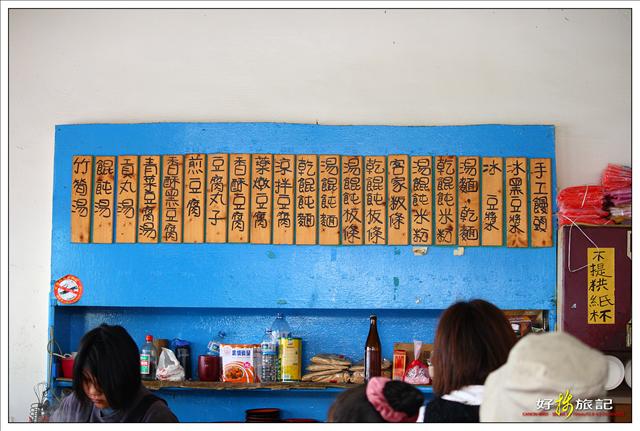 手工饅頭
冰黑豆漿
冰豆漿
湯麵乾麵
乾餛飩米粉
湯餛飩米粉
客家粄條
乾餛飩板條
湯餛飩板條
湯餛飩麵
乾餛飩麵
涼拌豆腐
葉嫩豆腐
香酥豆腐
豆腐丸子
煎豆腐
香酥黑豆腐
青菜豆腐湯
貢丸湯
餛飩湯
竹筍湯
不提供紙杯
好摸旅記